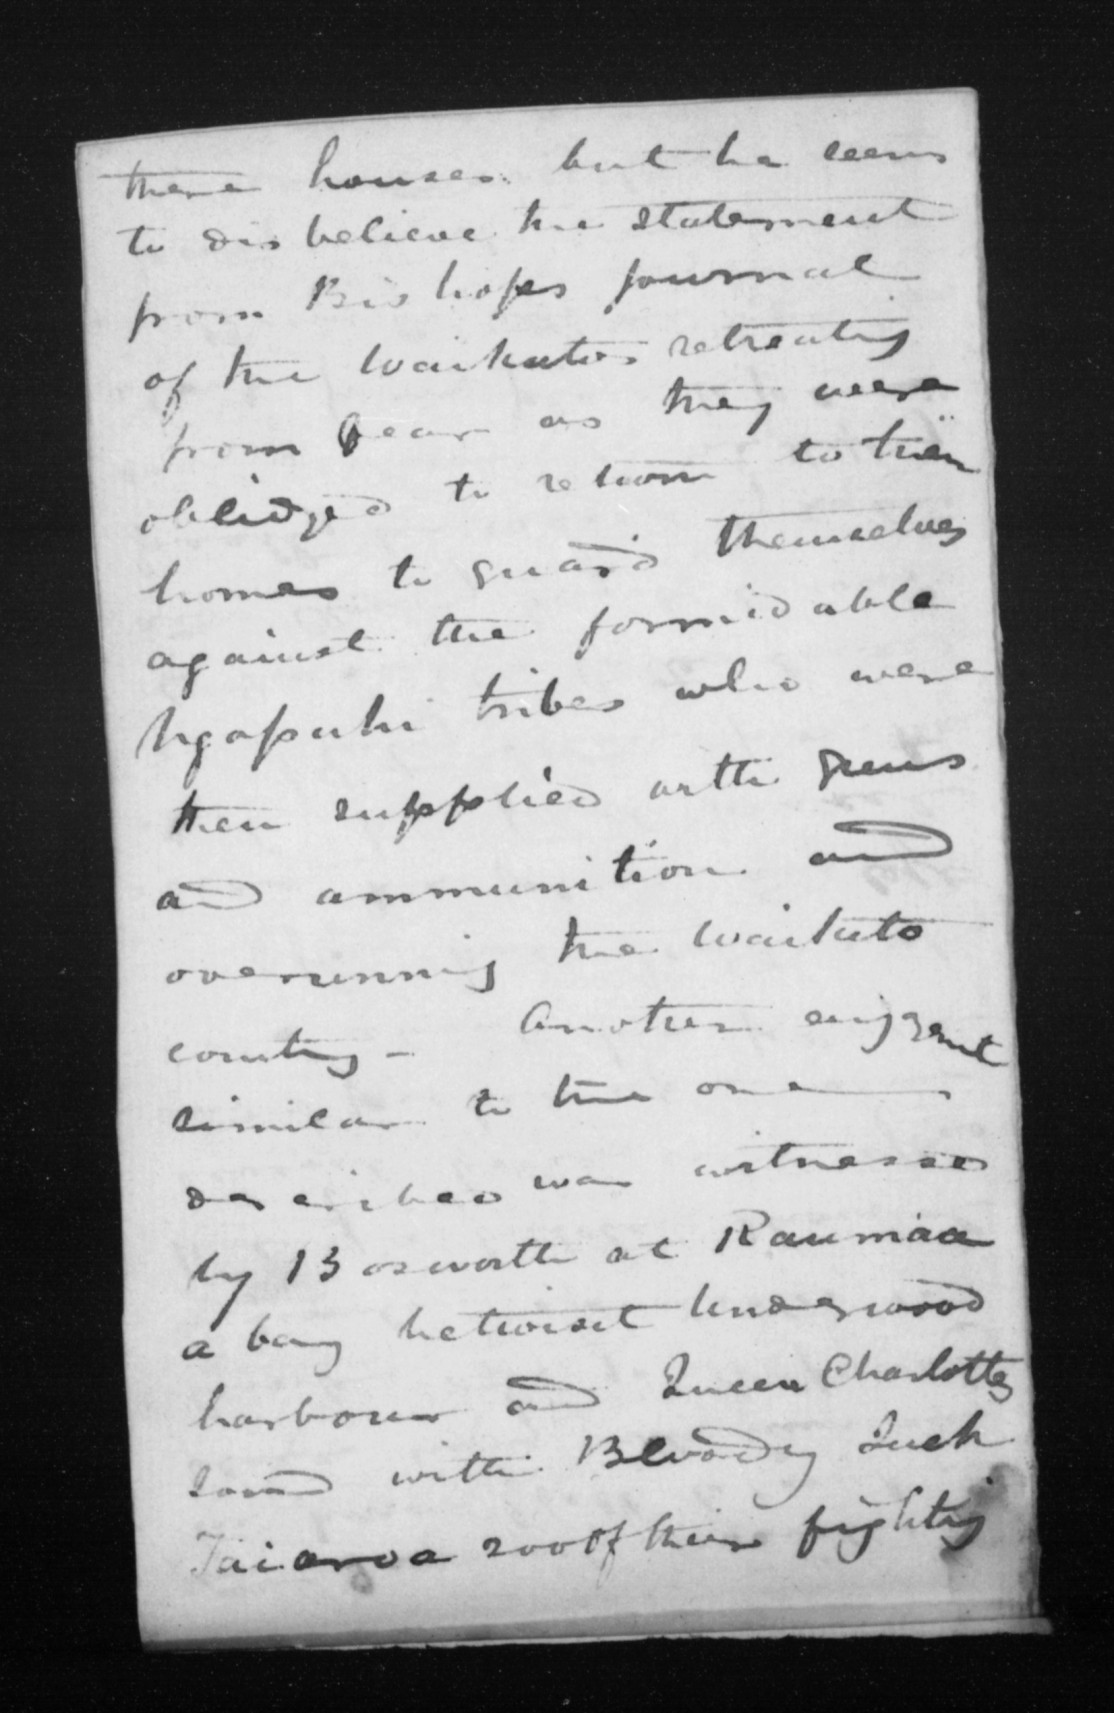 there houses but he seems
to disbelieve the statement
from Bishops journal
of the Waikatos retreating
from fear as they were
oblidged to return to their
homes to guard themselves
against the formidable
Ngapuhi tribes who were
then supplied with guns
and ammunition and
overrunning the Waikato
country - Another
similar to the one
described was witnessed
by Bosworth at Raumaa
a bay betwixt Underwood
harbour and Queen Charlottes
Sound with Bloody Jack
Taiaroa 200 of their fighting